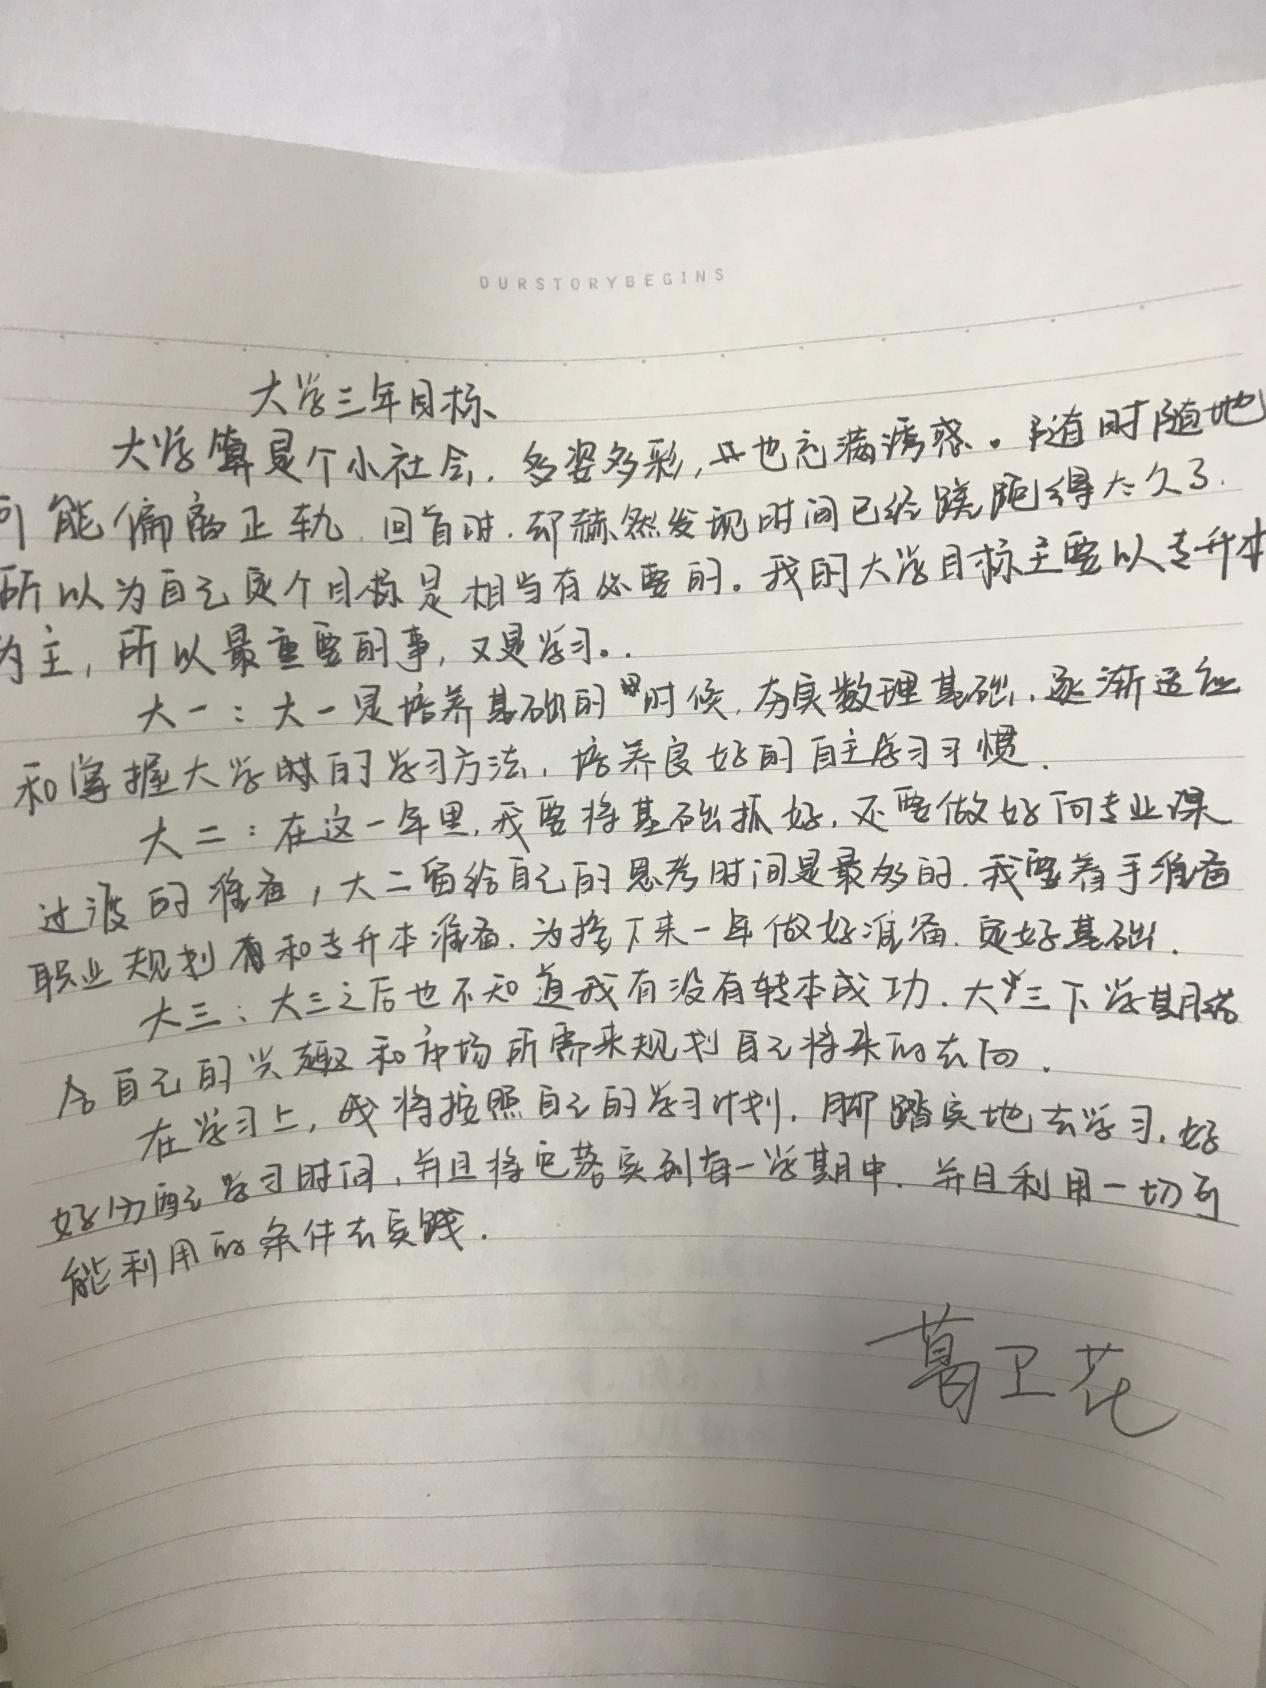 OURSTORYBEGINS
大学三年目标
大学算是个小社会，多姿多彩，也充满诱惑。随时随地
可能偏离正轨，回首时，却赫然发现时间已经蹉跎得太久了.
所以为自己定个目标是相当有必要的。我的大学目标主要以专升本
为主，所以最重要的事，又是学习。
大一：大一是培养基础的时候，夯实数理基础，逐渐适应
和掌握大学的学习方法，培养良好的自主学习习惯.
大二：在这一年里，我要将基础抓好，还要做好向专业课
过渡的准备，大二留给自己的思考时间是最多的，我要着手准备
职业规划和专升本准备，为接下来一年做好准备，定好基础.
大三：大三之后也不知道我有没有转本成功，大三下学期结
合自己的兴趣和市场所需来规划自己将来的去向.
在学习上，我将按照自己的学习计划，脚踏实地去学习，好
好分配学习时间，并且将它落实到每一学期中，并且利用一切可
能利用的条件去实践.
葛卫花